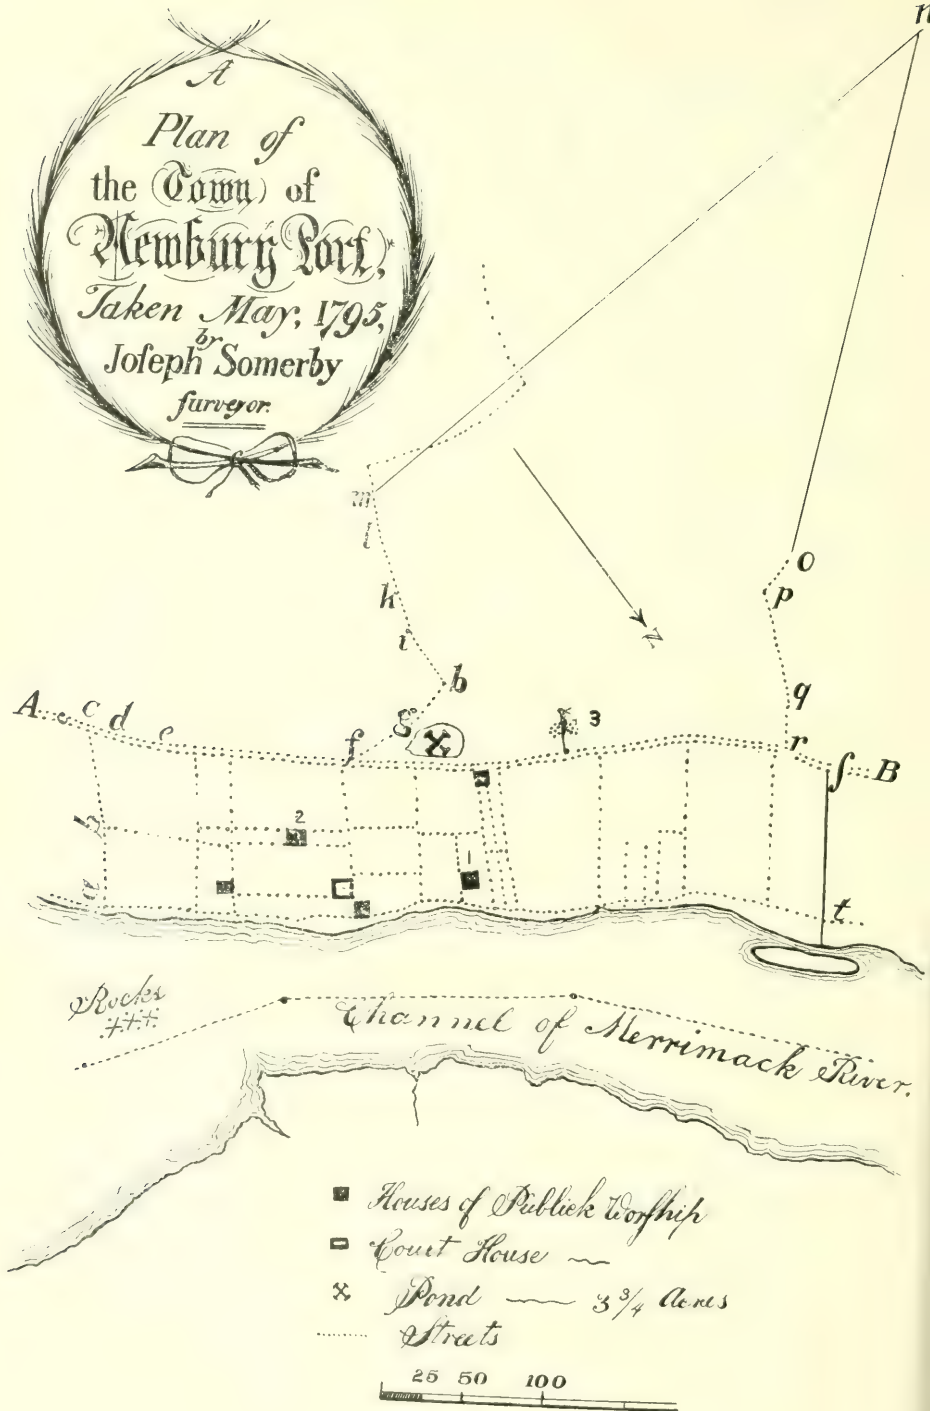 A
Plan of
the Town of
Newbury Port,
Taken May, 1795,
by
Joſeph Somerby
ſurveyor.
n
m
l
k
i
b
o
p
q
r
ſ
B
N
A
c
c
d
e
f
g
3
2
1
b
a
t
Rocks
Channel of Merrimack River.
Houses of Publick Worſhip
Court House
Pond 3 3/4 Acres
Streets
25 50 100